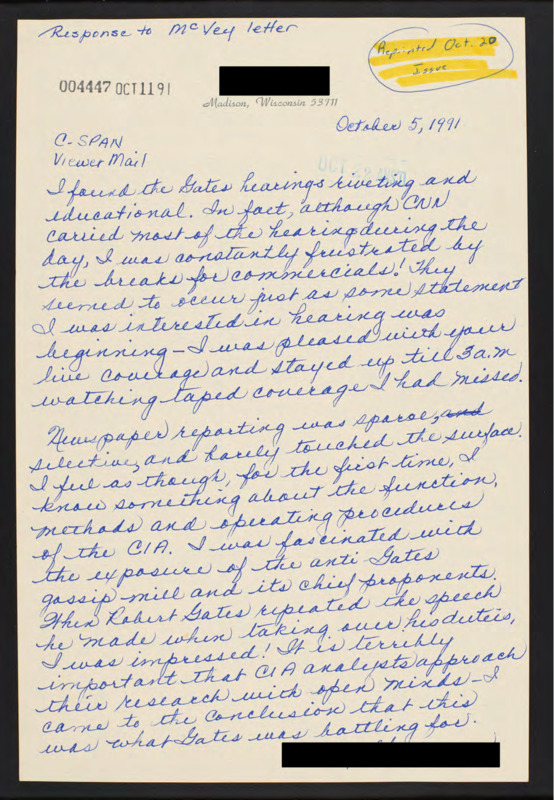 Response to McVey letter
Reprinted Oct. 20
Issue
004447 OCT1191
Madison, Wisconsin 53711
October 5, 1991
C-SPAN
Viewer Mail
I found the Gates hearings riveting and
educational. In fact, although CNN
carried most of the hearing during the
day, I was constantly frustrated by
the breaks for commercials! They
seemed to occur just as some statement
I was interested in hearing was
beginning – I was pleased with your
live coverage and stayed up till 3 a.m
watching taped coverage I had missed.
Newspaper reporting was sparce, and
selective, and barely touched the surface.
I feel as though, for the first time, I
know something about the function,
methods and operating procedures
of the CIA. I was fascinated with
the exposure of the anti-Gates
gossip-mill and its chief proponents.
When Robert Gates repeated the speech
he made when taking over his duteis,
I was impressed! It is terribly
important that CIA analysts approach
their research with open minds – I
came to the conclusion that this
was what Gates was battling for.